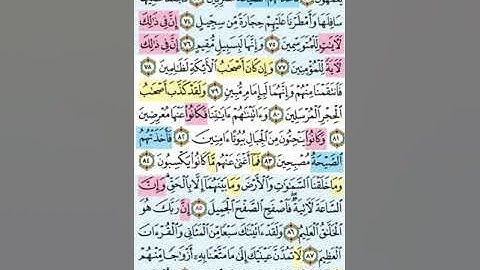 سَافِلَهَا وَأَمْطَرْنَا عَلَيْهِمْ حِجَارَةً مِّن سِجِّيلٍ ٧٤ إِنَّ فِي ذَٰلِكَ
لَآيَاتٍ لِّلْمُتَوَسِّمِينَ ٧٥ وَإِنَّهَا لَبِسَبِيلٍ مُّقِيمٍ ٧٦ إِنَّ فِي ذَٰلِكَ
لَآيَةً لِّلْمُؤْمِنِينَ ٧٧ وَإِن كَانَ أَصْحَابُ الْأَيْكَةِ لَظَالِمِينَ ٧٨
فَانتَقَمْنَا مِنْهُمْ وَإِنَّهُمَا لَبِإِمَامٍ مُّبِينٍ ٧٩ وَلَقَدْ كَذَّبَ أَصْحَابُ
الْحِجْرِ الْمُرْسَلِينَ ٨٠ وَءَاتَيْنَاهُمْ ءَايَاتِنَا فَكَانُوا عَنْهَا مُعْرِضِينَ
٨١ وَكَانُوا يَنْحِتُونَ مِنَ الْجِبَالِ بُيُوتًا ءَامِنِينَ ٨٢ فَأَخَذَتْهُمُ
الصَّيْحَةُ مُصْبِحِينَ ٨٣ فَمَا أَغْنَىٰ عَنْهُم مَّا كَانُوا يَكْسِبُونَ ٨٤
وَمَا خَلَقْنَا السَّمَاوَاتِ وَالْأَرْضَ وَمَا بَيْنَهُمَا إِلَّا بِالْحَقِّ وَإِنَّ
السَّاعَةَ لَآتِيَةٌ فَاصْفَحِ الصَّفْحَ الْجَمِيلَ ٨٥ إِنَّ رَبَّكَ هُوَ
الْخَلَّاقُ الْعَلِيمُ ٨٦ وَلَقَدْ ءَاتَيْنَاكَ سَبْعًا مِّنَ الْمَثَانِي وَالْقُرْءَانَ
الْعَظِيمَ ٨٧ لَا تَمُدَّنَّ عَيْنَيْكَ إِلَىٰ مَا مَتَّعْنَا بِهِ أَزْوَاجًا مِّنْهُمْ